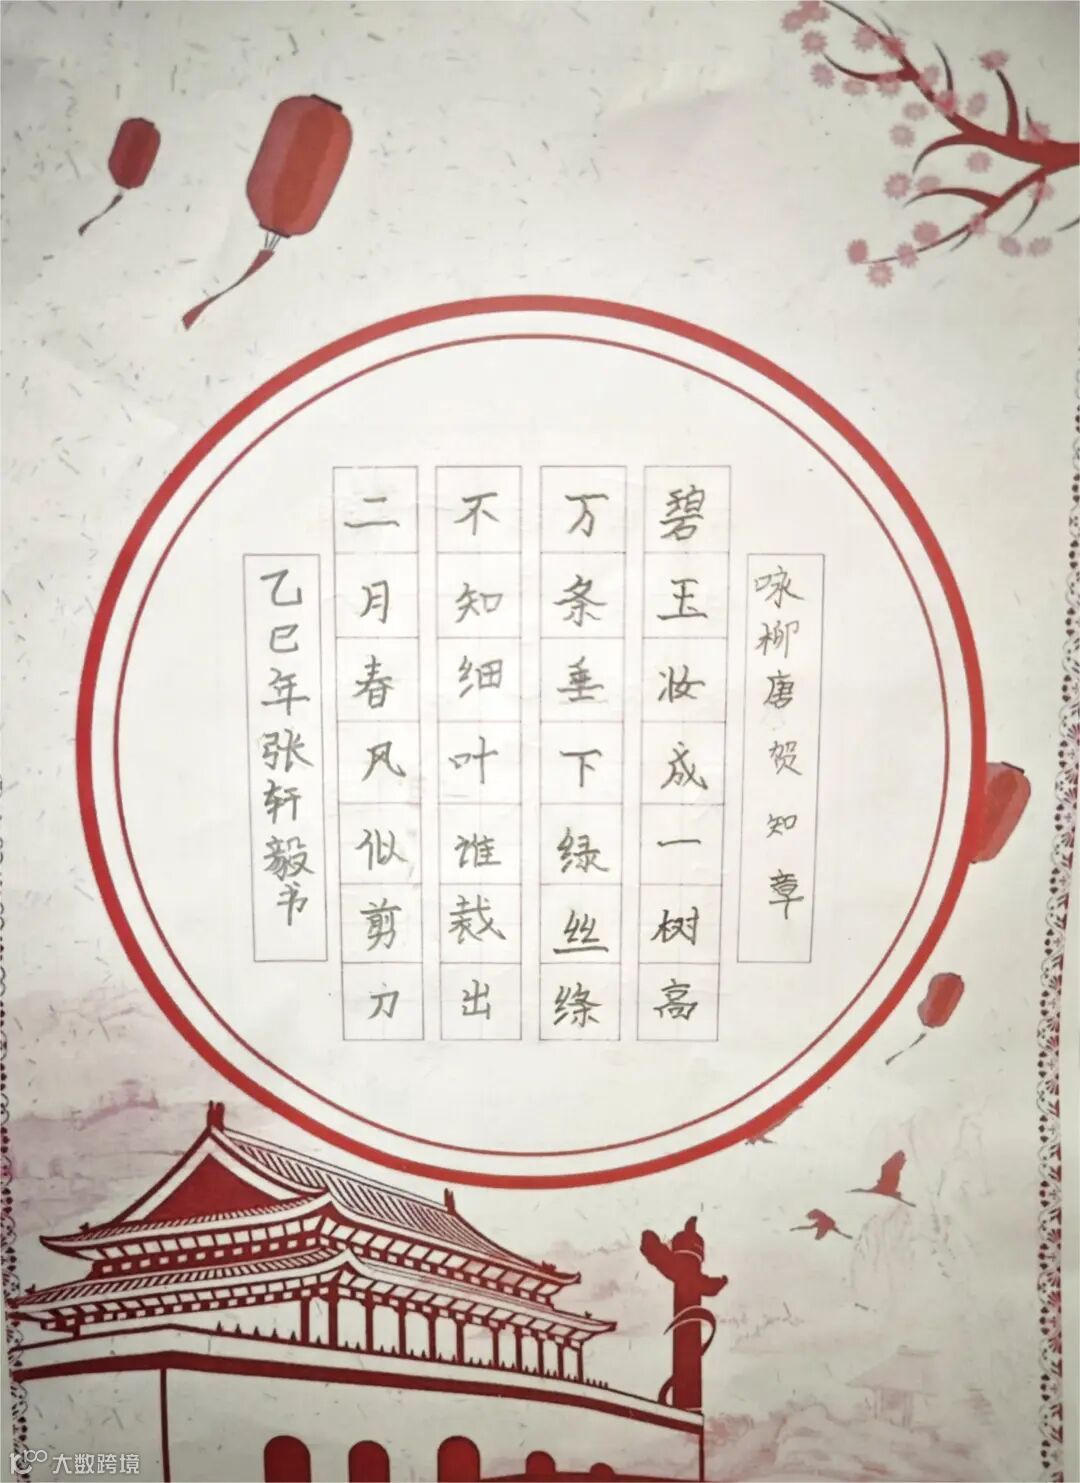 咏柳唐贺知章
碧玉妆成一树高
万条垂下绿丝绦
不知细叶谁裁出
二月春风似剪刀
乙巳年张轩毅书
大数跨境